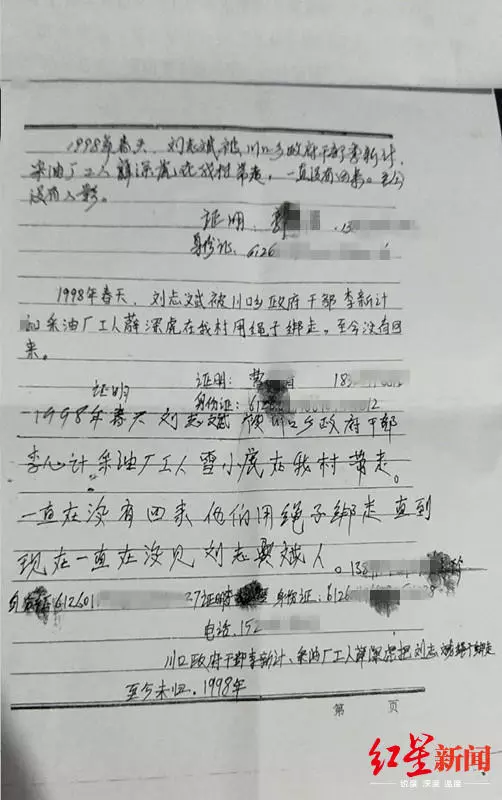 1998年春天、刘志斌被川口乡政府干部李新计、
采油厂工人薛深虎在我村带走,一直没有回来。至今
没有人影。
证明:郭 13
身份证:6126
1998年春天、刘志斌被川口乡政府干部李新计
和采油厂工人薛深虎在我村用绳子绑走,至今没有回
来。
证明:曹 18
证明
身份证:612 12
1998年春天刘志斌被川口乡政府干部
李心计采油厂工人雪小虎在我村带走。
一直在没有回来他们用绳子绑走直到
现在一直在没见刘志斌人。13
612601 27证明 身份证:6126
电话.152
川口政府干部李新计、采油厂工人薛深虎把刘志斌绑走
至今未归.1998年
第 页
红星新闻
锐度 深度 温度